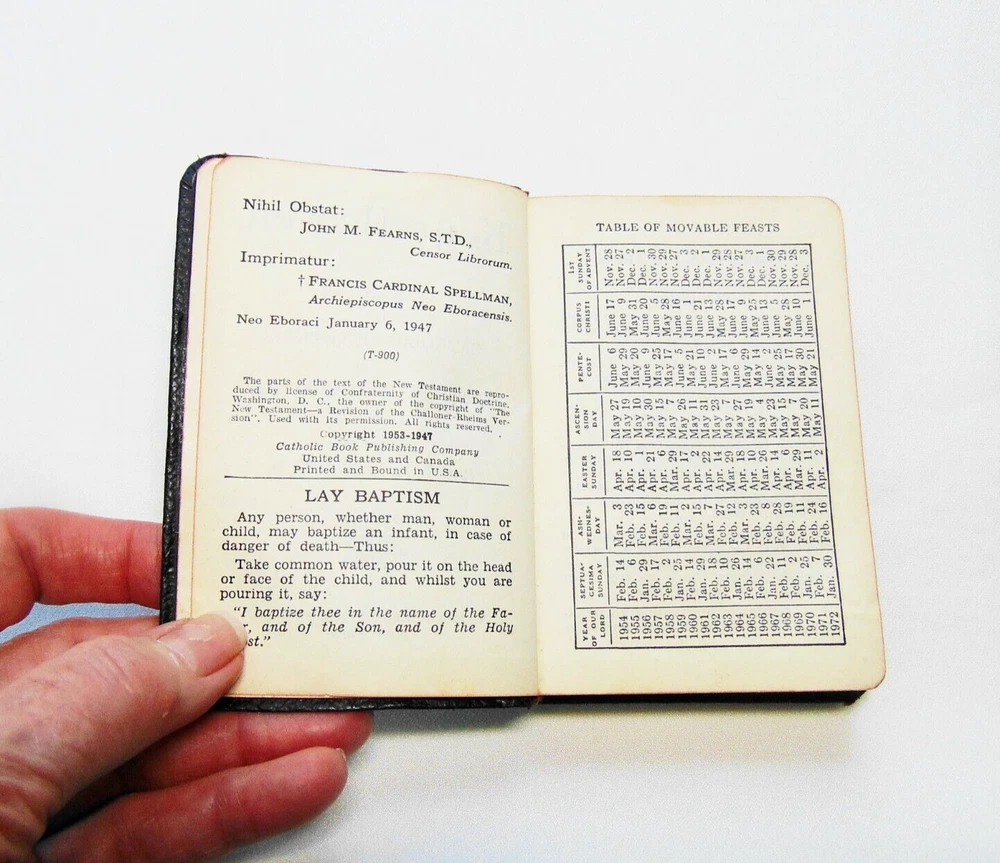 Nihil Obstat:
JOHN M. FEARNS, S.T.D.,
Censor Librorum.
Imprimatur:
† FRANCIS CARDINAL SPELLMAN,
Archiepiscopus Neo Eboracensis.
Neo Eboraci January 6, 1947
(T-900)
The parts of the text of the New Testament are repro-
duced by license of Confraternity of Christian Doctrine,
Washington, D. C., the owner of the copyright of "The
New Testament—a Revision of the Challoner-Rheims Ver-
sion". Used with its permission. All rights reserved.
Copyright 1953-1947
Catholic Book Publishing Company
United States and Canada
Printed and Bound in U.S.A.
LAY BAPTISM
Any person, whether man, woman or
child, may baptize an infant, in case of
danger of death—Thus:
Take common water, pour it on the head
or face of the child, and whilst you are
pouring it, say:
"I baptize thee in the name of the Fa-
, and of the Son, and of the Holy
TABLE OF MOVABLE FEASTS
YEAR OF OUR LORD SEPTUA-GESIMA SUNDAY ASH-WEDNES-DAY EASTER SUNDAY ASCEN-SION DAY PENTE-COST CORPUS CHRISTI 1ST SUNDAY OF ADVENT
1954 Feb. 14 Mar. 3 Apr. 18 May 27 June 6 June 17 Nov. 28
1955 Feb. 6 Feb. 23 Apr. 10 May 19 May 29 June 9 Nov. 27
1956 Jan. 29 Feb. 15 Apr. 1 May 10 May 20 May 31 Dec. 2
1957 Feb. 17 Mar. 6 Apr. 21 May 30 June 9 June 20 Dec. 1
1958 Feb. 2 Feb. 19 Apr. 6 May 15 May 25 June 5 Nov. 30
1959 Jan. 25 Feb. 11 Mar. 29 May 7 May 17 May 28 Nov. 29
1960 Feb. 14 Mar. 2 Apr. 17 May 26 June 5 June 16 Nov. 27
1961 Jan. 29 Feb. 15 Apr. 2 May 11 May 21 June 1 Dec. 3
1962 Feb. 18 Mar. 7 Apr. 22 May 31 June 10 June 21 Dec. 2
1963 Feb. 10 Feb. 27 Apr. 14 May 23 June 2 June 13 Dec. 1
1964 Jan. 26 Feb. 12 Mar. 29 May 7 May 17 May 28 Nov. 29
1965 Feb. 14 Mar. 3 Apr. 18 May 27 June 6 June 17 Nov. 28
1966 Feb. 6 Feb. 23 Apr. 10 May 19 May 29 June 9 Nov. 27
1967 Jan. 22 Feb. 8 Mar. 26 May 4 May 14 May 25 Dec. 3
1968 Feb. 11 Feb. 28 Apr. 14 May 23 June 2 June 13 Dec. 1
1969 Feb. 2 Feb. 19 Apr. 6 May 15 May 25 June 5 Nov. 30
1970 Jan. 25 Feb. 11 Mar. 29 May 7 May 17 May 28 Nov. 29
1971 Feb. 7 Feb. 24 Apr. 11 May 20 May 30 June 10 Nov. 28
1972 Jan. 30 Feb. 16 Apr. 2 May 11 May 21 June 1 Dec. 3